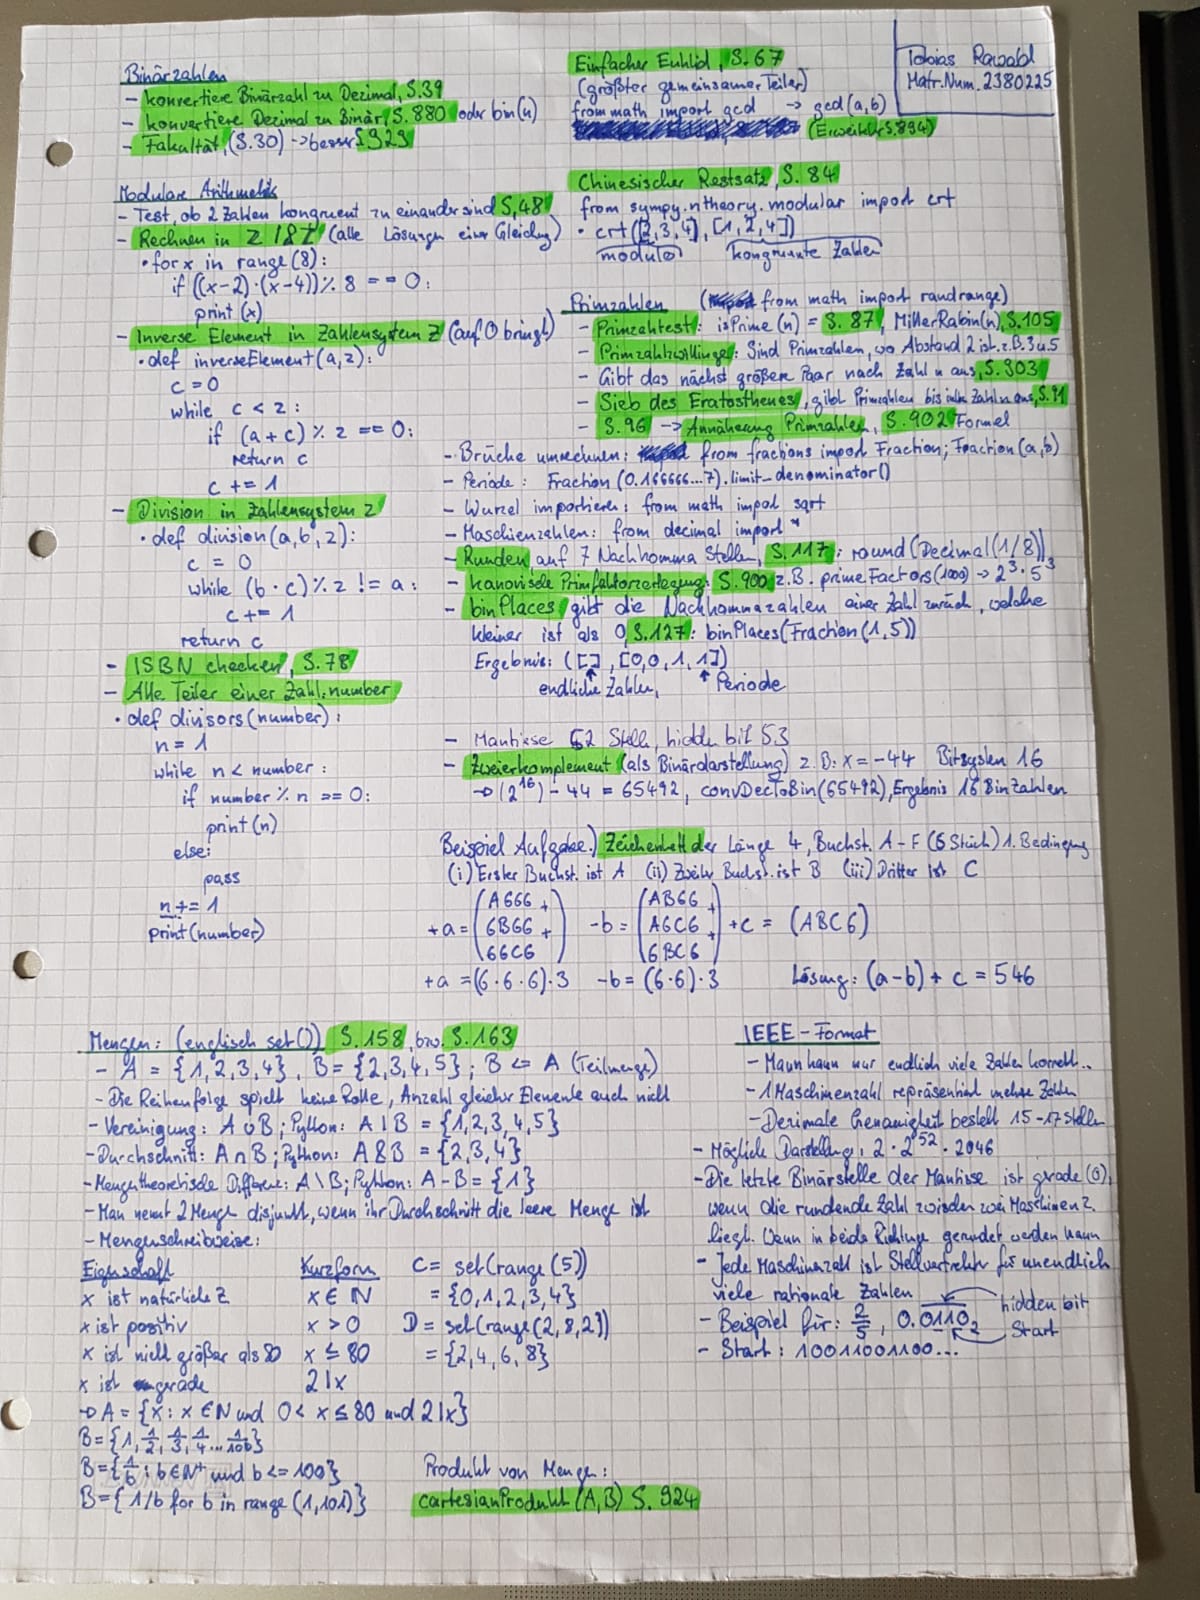 Tobias Rawald
Matr.Num. 2380225
Binärzahlen
- konvertiere Binärzahl zu Dezimal, S.39
- konvertiere Dezimal zu Binär, S. 880 oder bin(n)
- Fakultät, (S.30) -> besser S 929
Modulare Arithmetik
- Test, ob 2 Zahlen kongruent zu einander sind S,48
- Rechnen in Z/8Z (alle Lösungen einer Gleichung)
• for x in range (8):
if ((x-2)·(x-4))% 8 == 0:
print (x)
- Inverse Element in Zahlensystem Z (auf 0 bringt)
• def inverseElement(a,z):
c = 0
while c < z :
if (a + c) % z == 0:
return c
c += 1
- Division in Zahlensystem z
• def division(a, b, z):
c = 0
while (b · c) % z != a :
c += 1
return c
- ISBN checken, S. 78
- Alle Teiler einer Zahl: number
• def divisors (number) :
n = 1
while n < number :
if number % n == 0:
print (n)
else:
pass
n += 1
print (number)
Einfacher Euklid, S. 67
(größter gemeinsamer Teiler)
from math import gcd -> gcd (a, b)
S.894)
Chinesischer Restsatz, S. 84
from sympy.ntheory.modular import crt
• crt ([2, 3, 4], [1, 2, 4])
modulo kongruente Zahlen
Primzahlen ( from math import randrange)
- Primzahltest: isPrime (n) = S. 87, MillerRabin(n), S.105
- Primzahlzwillinge: Sind Primzahlen, wo Abstand 2 ist. z.B. 3 u. 5
- Gibt das nächst größere Paar nach Zahl n aus, S. 903
- Sieb des Eratosthenes, gibt Primzahlen bis Zahl n aus, S. 91
- S. 96 -> Annäherung Primzahlen, S. 902 Formel
- Brüche umrechnen: from fractions import Fraction; Fraction (a, b)
- Periode : Fraction (0.166666...7).limit_denominator()
- Wurzel importieren: from math import sqrt
- Maschienzahlen: from decimal import *
- Runden auf 7 Nachkomma Stellen, S. 117 : round (Decimal(1/8)),
- kanonische Primfaktorzerlegung: S. 900, z.B. primeFactors(1000) -> 2³·5³
- binPlaces gibt die Nachkommazahlen einer Zahl zurück, welche
kleiner ist als 0, S.127 : binPlaces(Fraction (1,5))
Ergebnis: ([], [0,0,1,1])
endliche Zahlen, Periode
- Mantisse 52 Stelle, hidden bit 53
- Zweierkomplement (als Binärdarstellung) z.B: x = -44 Bitsystem 16
-> (2^16) - 44 = 65492, convDecToBin(65492), Ergebnis 16 BinZahlen
Beispiel Aufgabe.) Zeichenkett der Länge 4, Buchst. A - F (6 Stück) 1. Bedingung
(i) Erster Buchst. ist A (ii) Zweiter Buchst. ist B (iii) Dritter ist C
+a = (A666 + 6B66 + 66C6) -b = (AB66 + A6C6 + 6BC6) +c = (ABC6)
+a = (6·6·6)·3 -b = (6·6)·3 Lösung: (a-b) + c = 546
Mengen: (englisch set()) S. 158, bzw. S. 163
- A = {1, 2, 3, 4}, B = {2, 3, 4, 5}; B <= A (Teilmenge)
- Die Reihenfolge spielt keine Rolle, Anzahl gleicher Elemente auch nicht
- Vereinigung: A ∪ B ; Python: A | B = {1, 2, 3, 4, 5}
- Durchschnitt: A ∩ B ; Python: A & B = {2, 3, 4}
- Mengentheoretische Differenz: A \ B ; Python: A - B = {1}
- Man nennt 2 Menge disjunkt, wenn ihr Durchschnitt die leere Menge ist
- Mengenschreibweise:
Eigenschaft Kurzform C = set(range (5))
x ist natürliche Z x ∈ N = {0, 1, 2, 3, 4}
x ist positiv x > 0 D = set(range(2, 8, 2))
x ist nicht größer als 80 x ≤ 80 = {2, 4, 6, 8}
x ist gerade 2 | x
-> A = {x : x ∈ N und 0 < x ≤ 80 und 2 | x}
B = {1, 1/2, 1/3, 1/4 ... 1/100}
B = {1/b : b ∈ N+ und b <= 100}
B = {1/b for b in range (1, 101)}
Produkt von Menge:
cartesianProdukt (A, B) S. 924
IEEE - Format
- Mann kann nur endlich viele Zahlen korrekt..
- 1 Maschinenzahl repräsentiert mehre Zahlen
- Dezimale Genauigkeit besteht 15 - 17 Stellen
- Mögliche Darstellung: 2 · 2^52 · 2046
- Die letzte Binärstelle der Mantisse ist grade (0),
wenn die rundende Zahl zwischen zwei Maschinen Z.
liegt. Wenn in beide Richtunge gerundet werden kann
- Jede Maschinenzahl ist Stellvertreter für unendlich
viele rationale Zahlen
- Beispiel für: 2/5, 0.0110₂ hidden bit
Start
- Start : 10011001100...